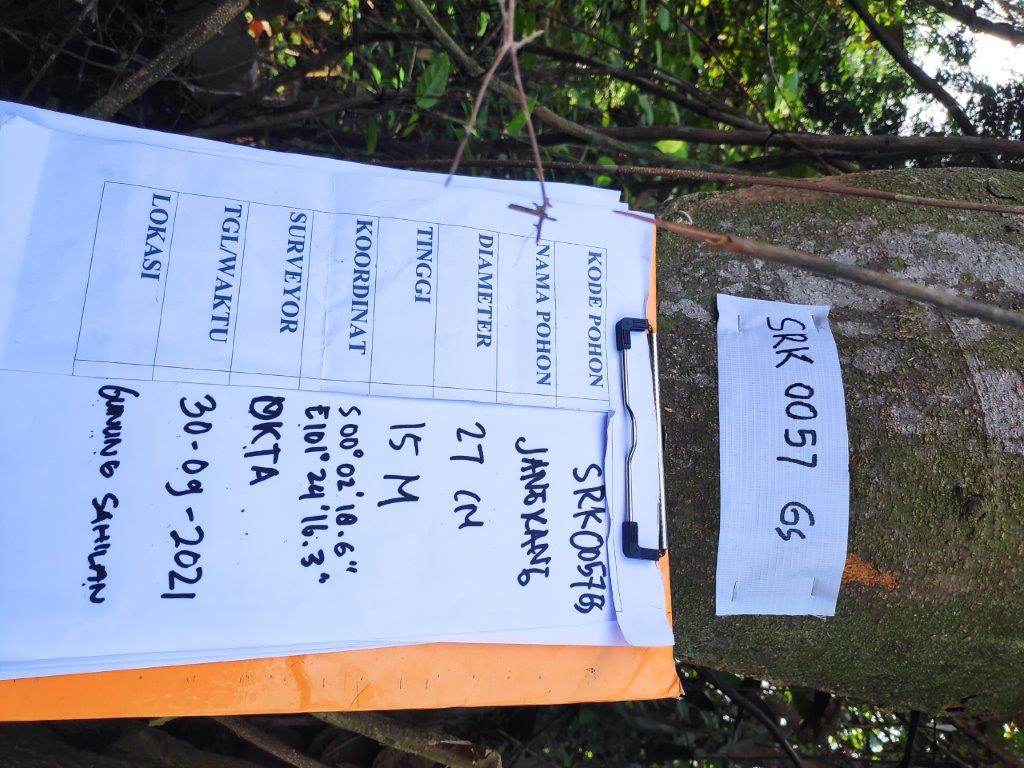 SRK 0057 GS
KODE POHON SRK0057GS
NAMA POHON JANGKANG
DIAMETER 27 CM
TINGGI 15 M
KOORDINAT S 00° 02' 18.6"
E101° 24' 16.3"
SURVEYOR OKTA
TGL/WAKTU 30-09-2021
LOKASI GUNUNG SAHILAN